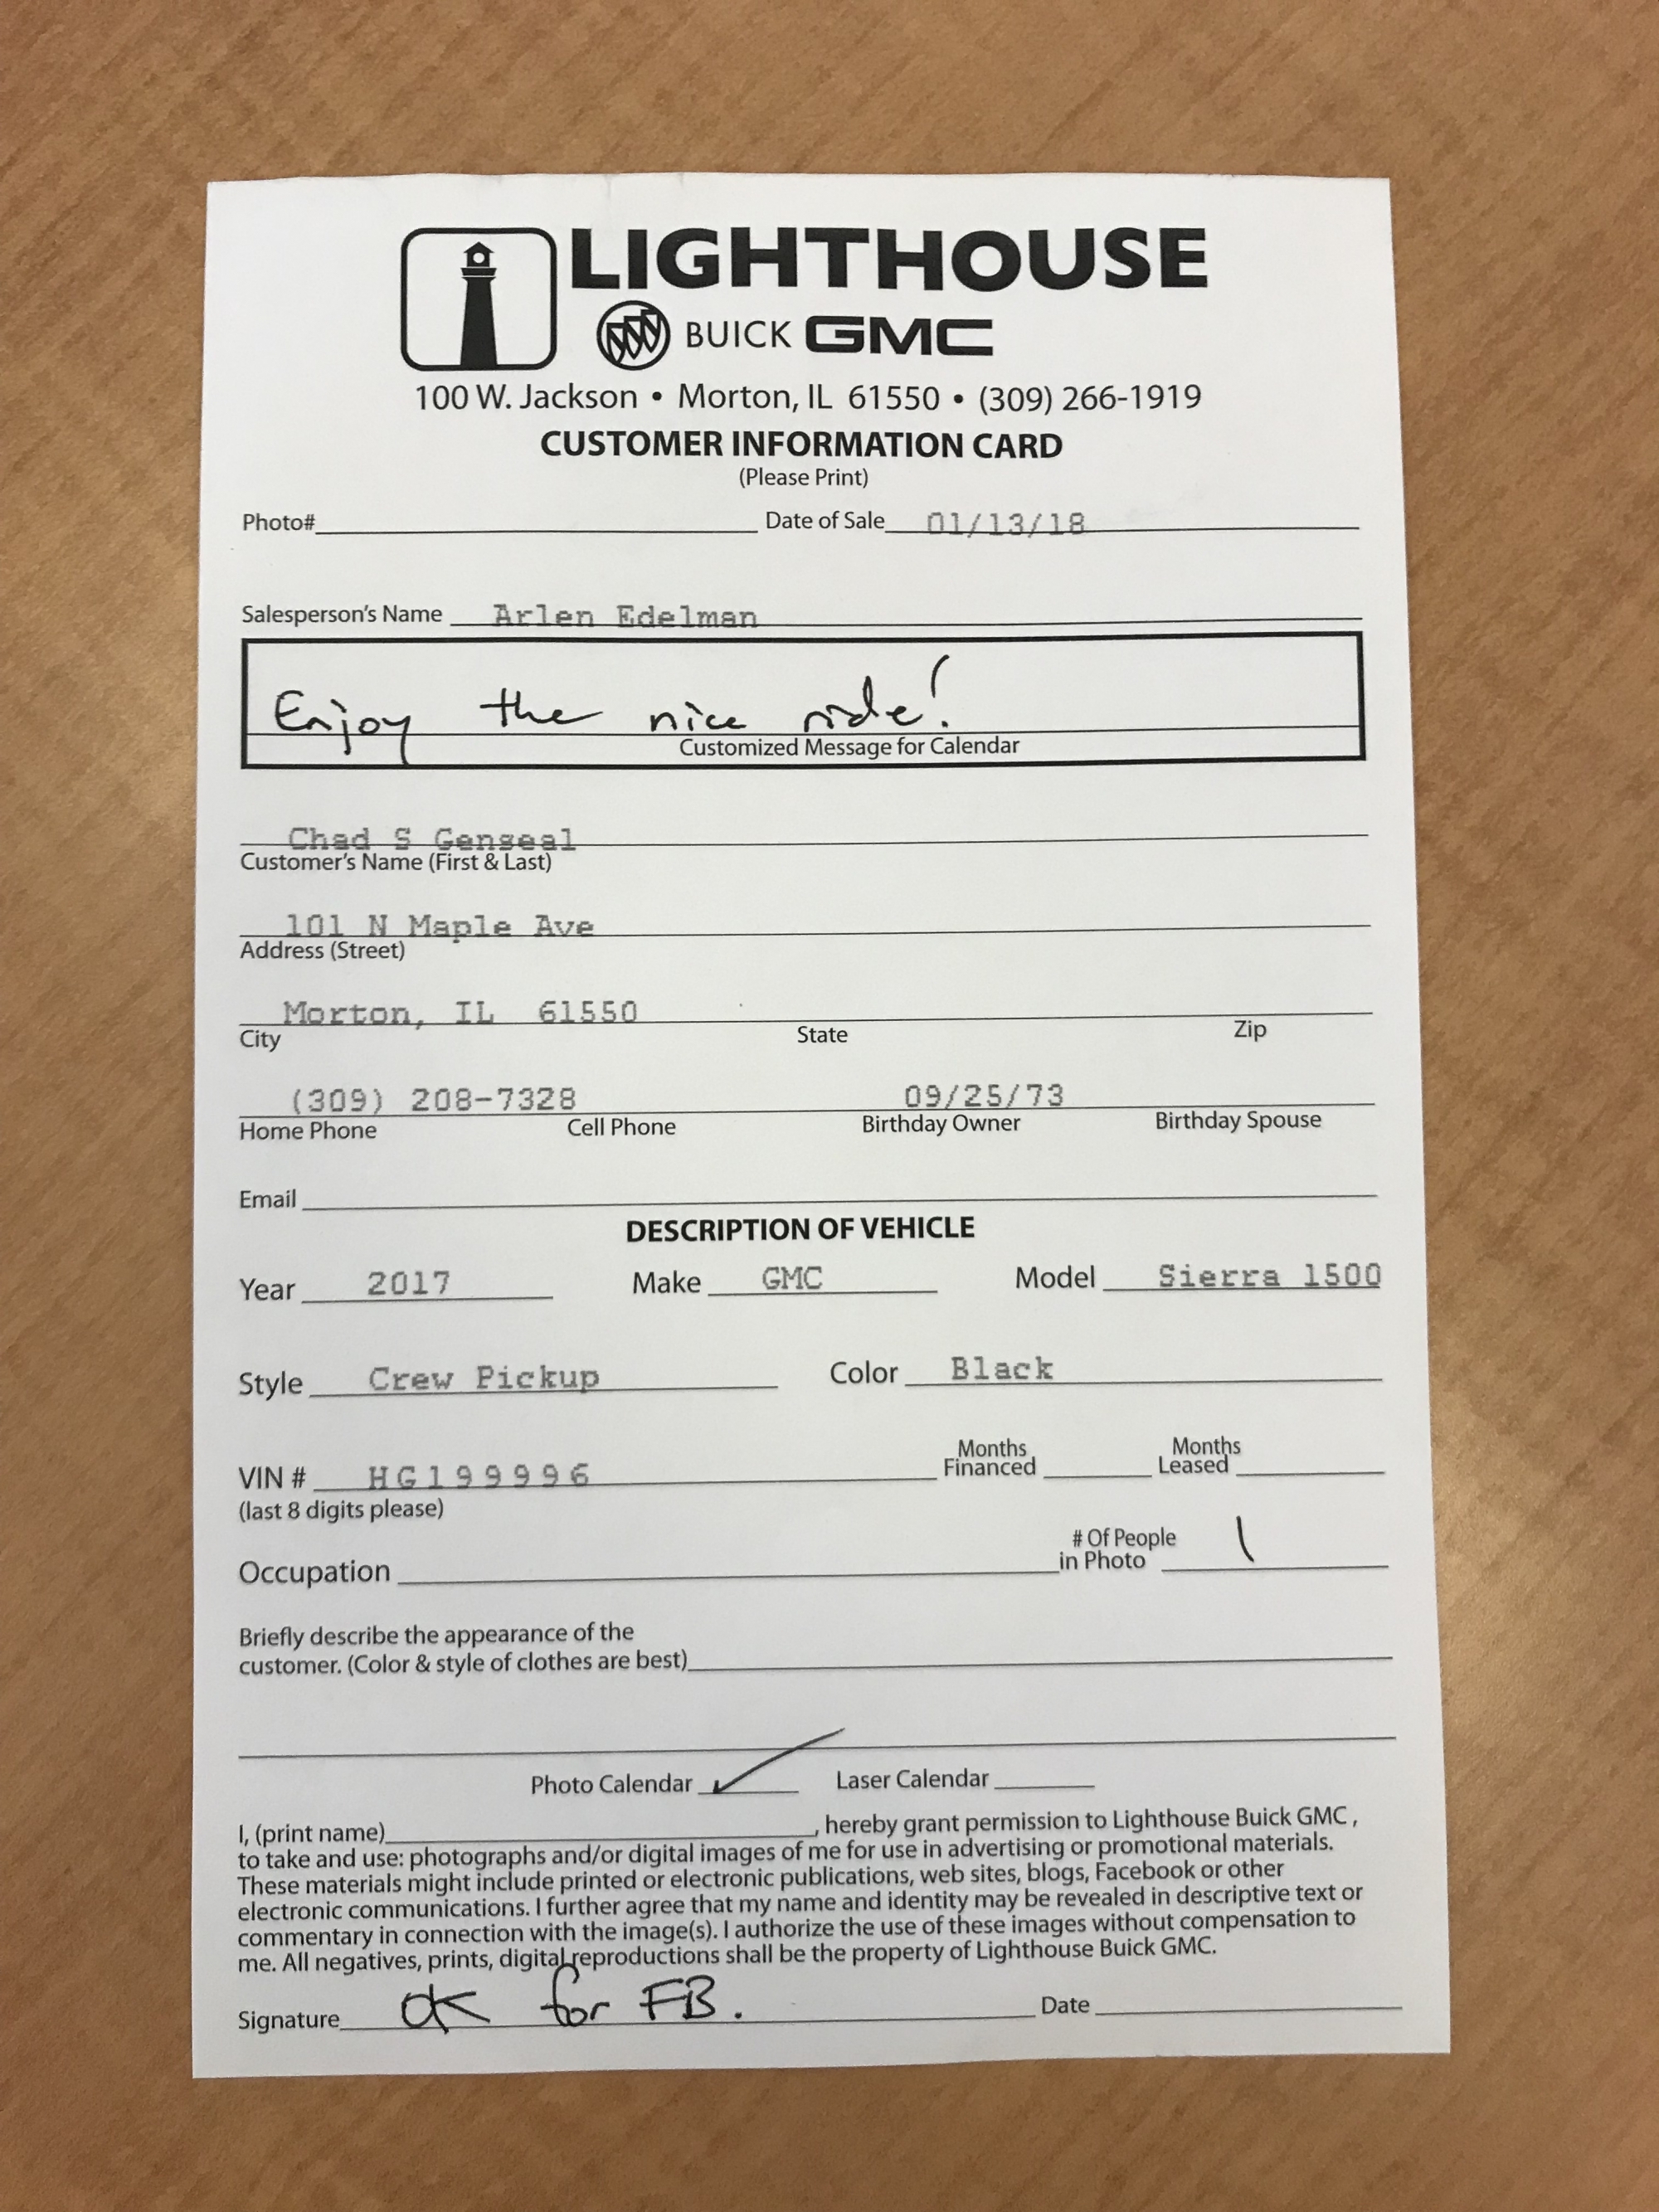 LIGHTHOUSE
BUICK GMC
100 W. Jackson • Morton, IL 61550 • (309) 266-1919
CUSTOMER INFORMATION CARD
(Please Print)
Photo# Date of Sale 01/13/18
Salesperson's Name Arlen Edelman
Enjoy the nice ride!
Customized Message for Calendar
Chad S Genseal
Customer's Name (First & Last)
101 N Maple Ave
Address (Street)
Morton, IL 61550
City State Zip
(309) 208-7328 09/25/73
Home Phone Cell Phone Birthday Owner Birthday Spouse
Email
DESCRIPTION OF VEHICLE
Year 2017 Make GMC Model Sierra 1500
Style Crew Pickup Color Black
Months Months
VIN # HG199996 Financed Leased
(last 8 digits please)
# Of People 1
Occupation in Photo
Briefly describe the appearance of the
customer. (Color & style of clothes are best)
Photo Calendar ✓ Laser Calendar
I, (print name), hereby grant permission to Lighthouse Buick GMC,
to take and use: photographs and/or digital images of me for use in advertising or promotional materials.
These materials might include printed or electronic publications, web sites, blogs, Facebook or other
electronic communications. I further agree that my name and identity may be revealed in descriptive text or
commentary in connection with the image(s). I authorize the use of these images without compensation to
me. All negatives, prints, digital reproductions shall be the property of Lighthouse Buick GMC.
Signature OK for FB. Date